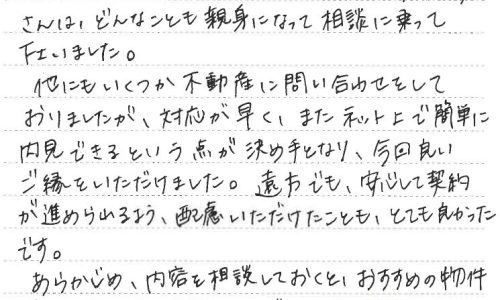 さんは、どんなことも親身になって相談に乗って
下さいました。
他にもいくつか不動産に問い合わせをして
おりましたが、対応が早く、またネット上で簡単に
内見できるという点が決め手となり、今回良い
ご縁をいただけました。遠方でも、安心して契約
が進められるよう、配慮いただけたことも、とても良かった
です。
あらかじめ、内容を相談しておくと、おすすめの物件